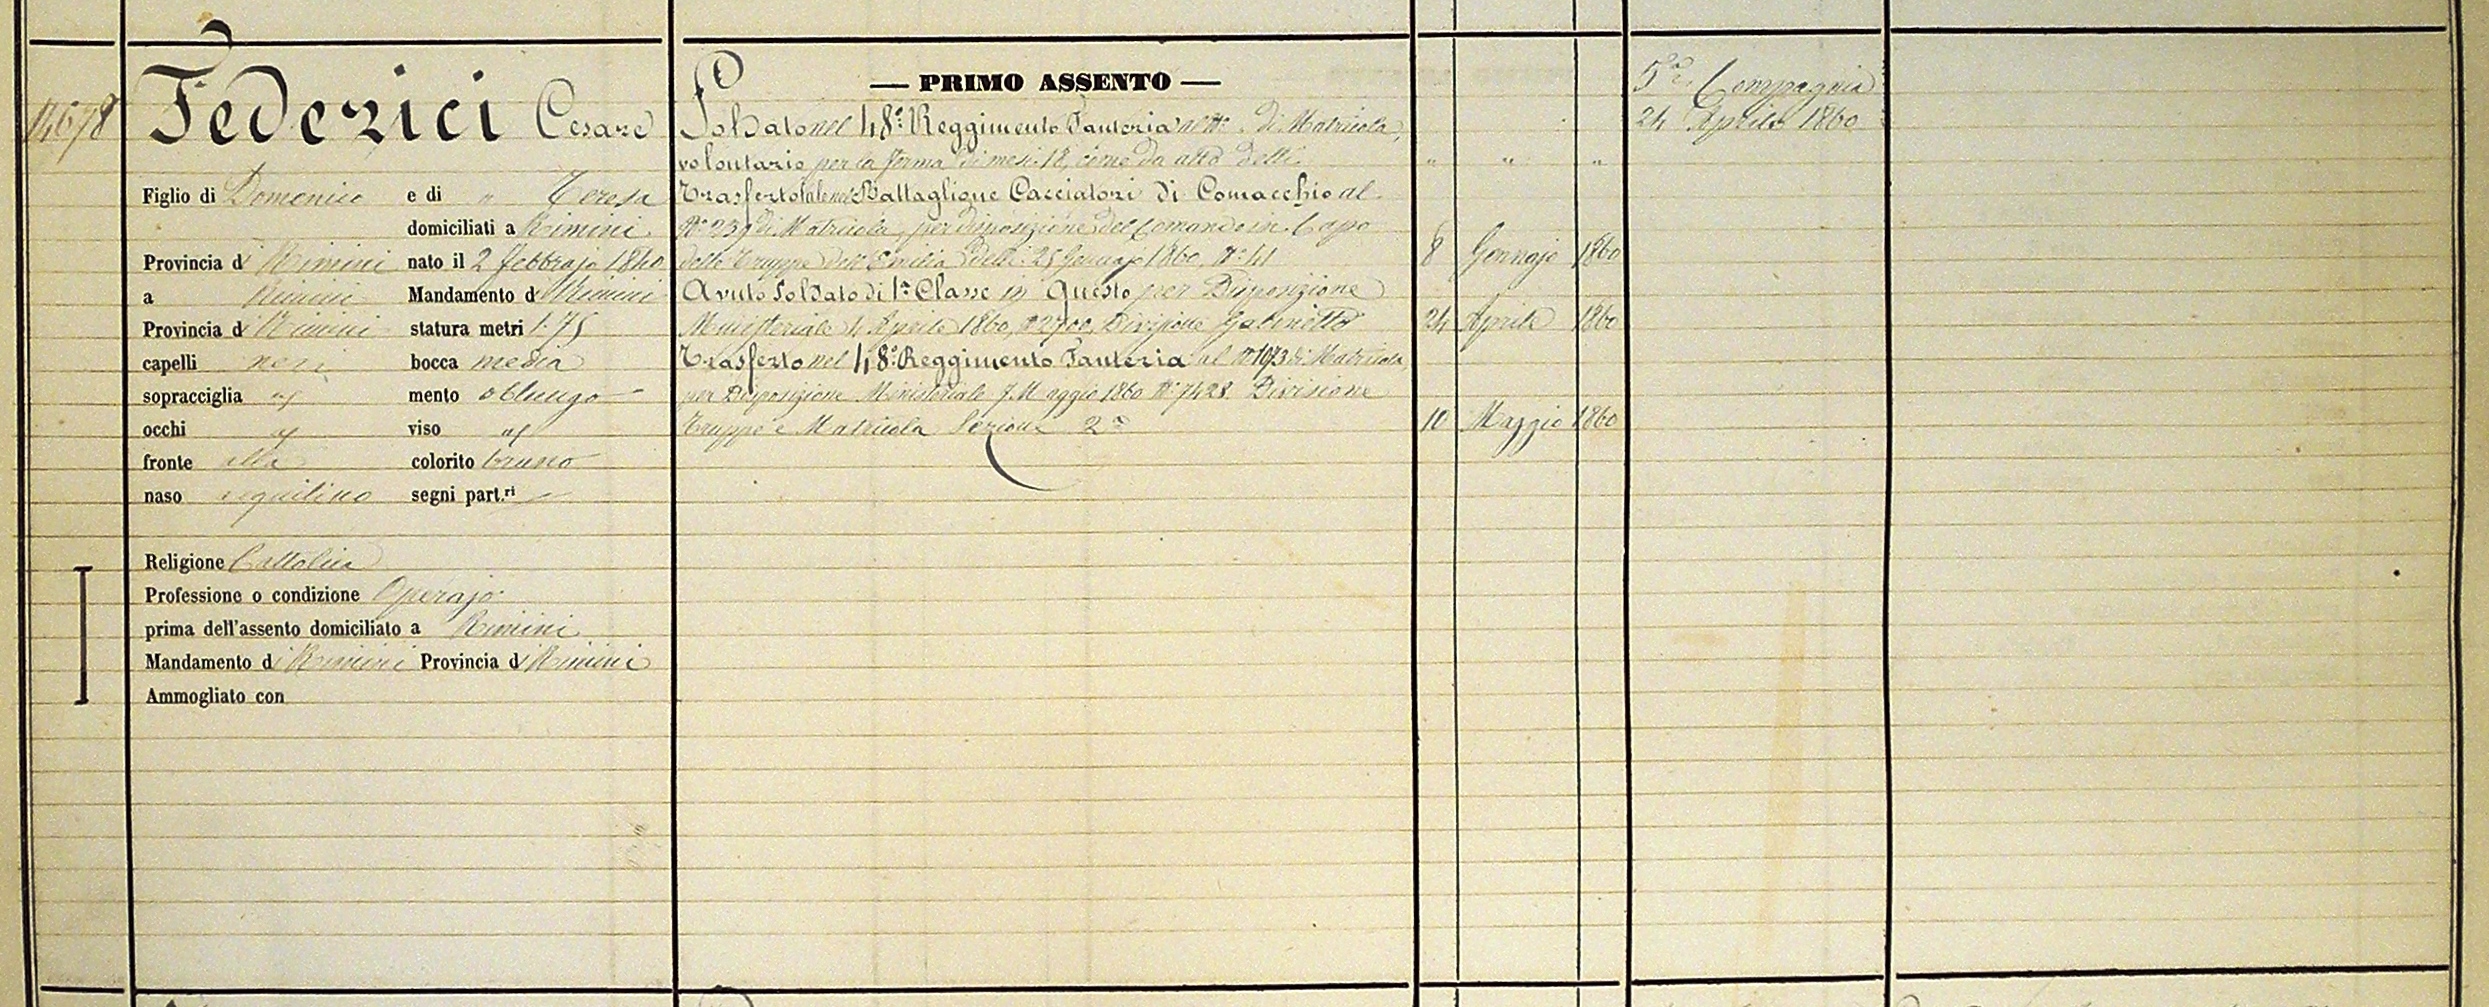 14678
Federici Cesare
Figlio di Domenico e di " Teresa
domiciliati a Rimini
Provincia di Rimini nato il 2 febbrajo 1840
a Rimini Mandamento di Rimini
Provincia di Rimini statura metri 1.75
capelli neri bocca media
sopracciglia " mento oblungo
occhi " viso "
fronte alta colorito bruno
naso aquilino segni part.ri
Religione Cattolica
Professione o condizione Operajo
prima dell'assento domiciliato a Rimini
Mandamento di Rimini Provincia di Rimini
Ammogliato con
— PRIMO ASSENTO —
Soldato nel 48° Reggimento Fanteria al N° . di Matricola,
volontario per la ferma di mesi 18, come da atto delli " " "
Trasferto tale nel Battaglione Cacciatori di Comacchio al
N° 239 di Matricola, per disposizione del Comando in Capo
delle Truppe dell'Emilia delli 25 Gennajo 1860, N° 41 8 Gennajo 1860
Avuto Soldato di 1a Classe in Questo per Disposizione
Ministeriale 4 Aprile 1860, N° 2700, Divisione Gabinetto 24 Aprile 1860
Trasferto nel 48° Reggimento Fanteria al N° 1073 di Matricola,
per Disposizione Ministeriale 7 Maggio 1860 N° 7428. Divisione
Truppe e Matricola Sezione 2a 10 Maggio 1860
5a Compagnia
24 Aprile 1860